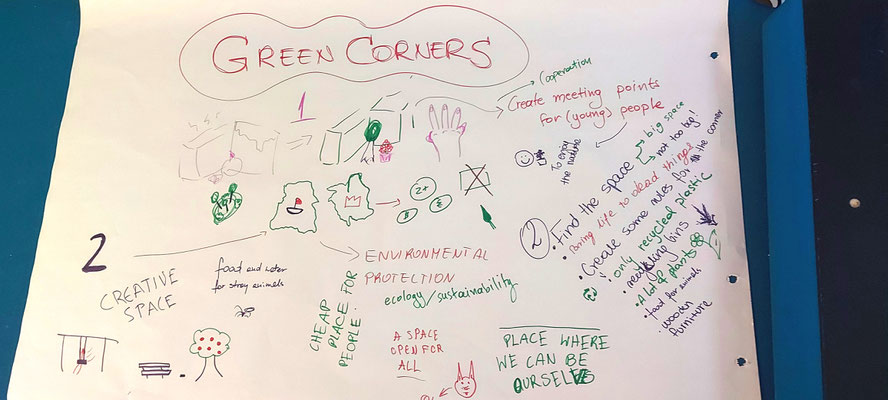 GREEN CORNERS
1
Cooperation
Create meeting points
for (young) people
To enjoy
the nature
2+
$
€
2
• Find the space
big space
not too big!
• Bring life to dead things
• Create some rules for the corner
• only recycled plastic
• recycling bins
• A lot of plants
• food for animals
• wooden
furniture
2
CREATIVE
SPACE
food and water
for stray animals
ENVIRONMENTAL
PROTECTION
ecology/sustainability
CHEAP
PLACE FOR
PEOPLE.
A SPACE
OPEN FOR
ALL
PLACE WHERE
WE CAN BE
OURSELVES